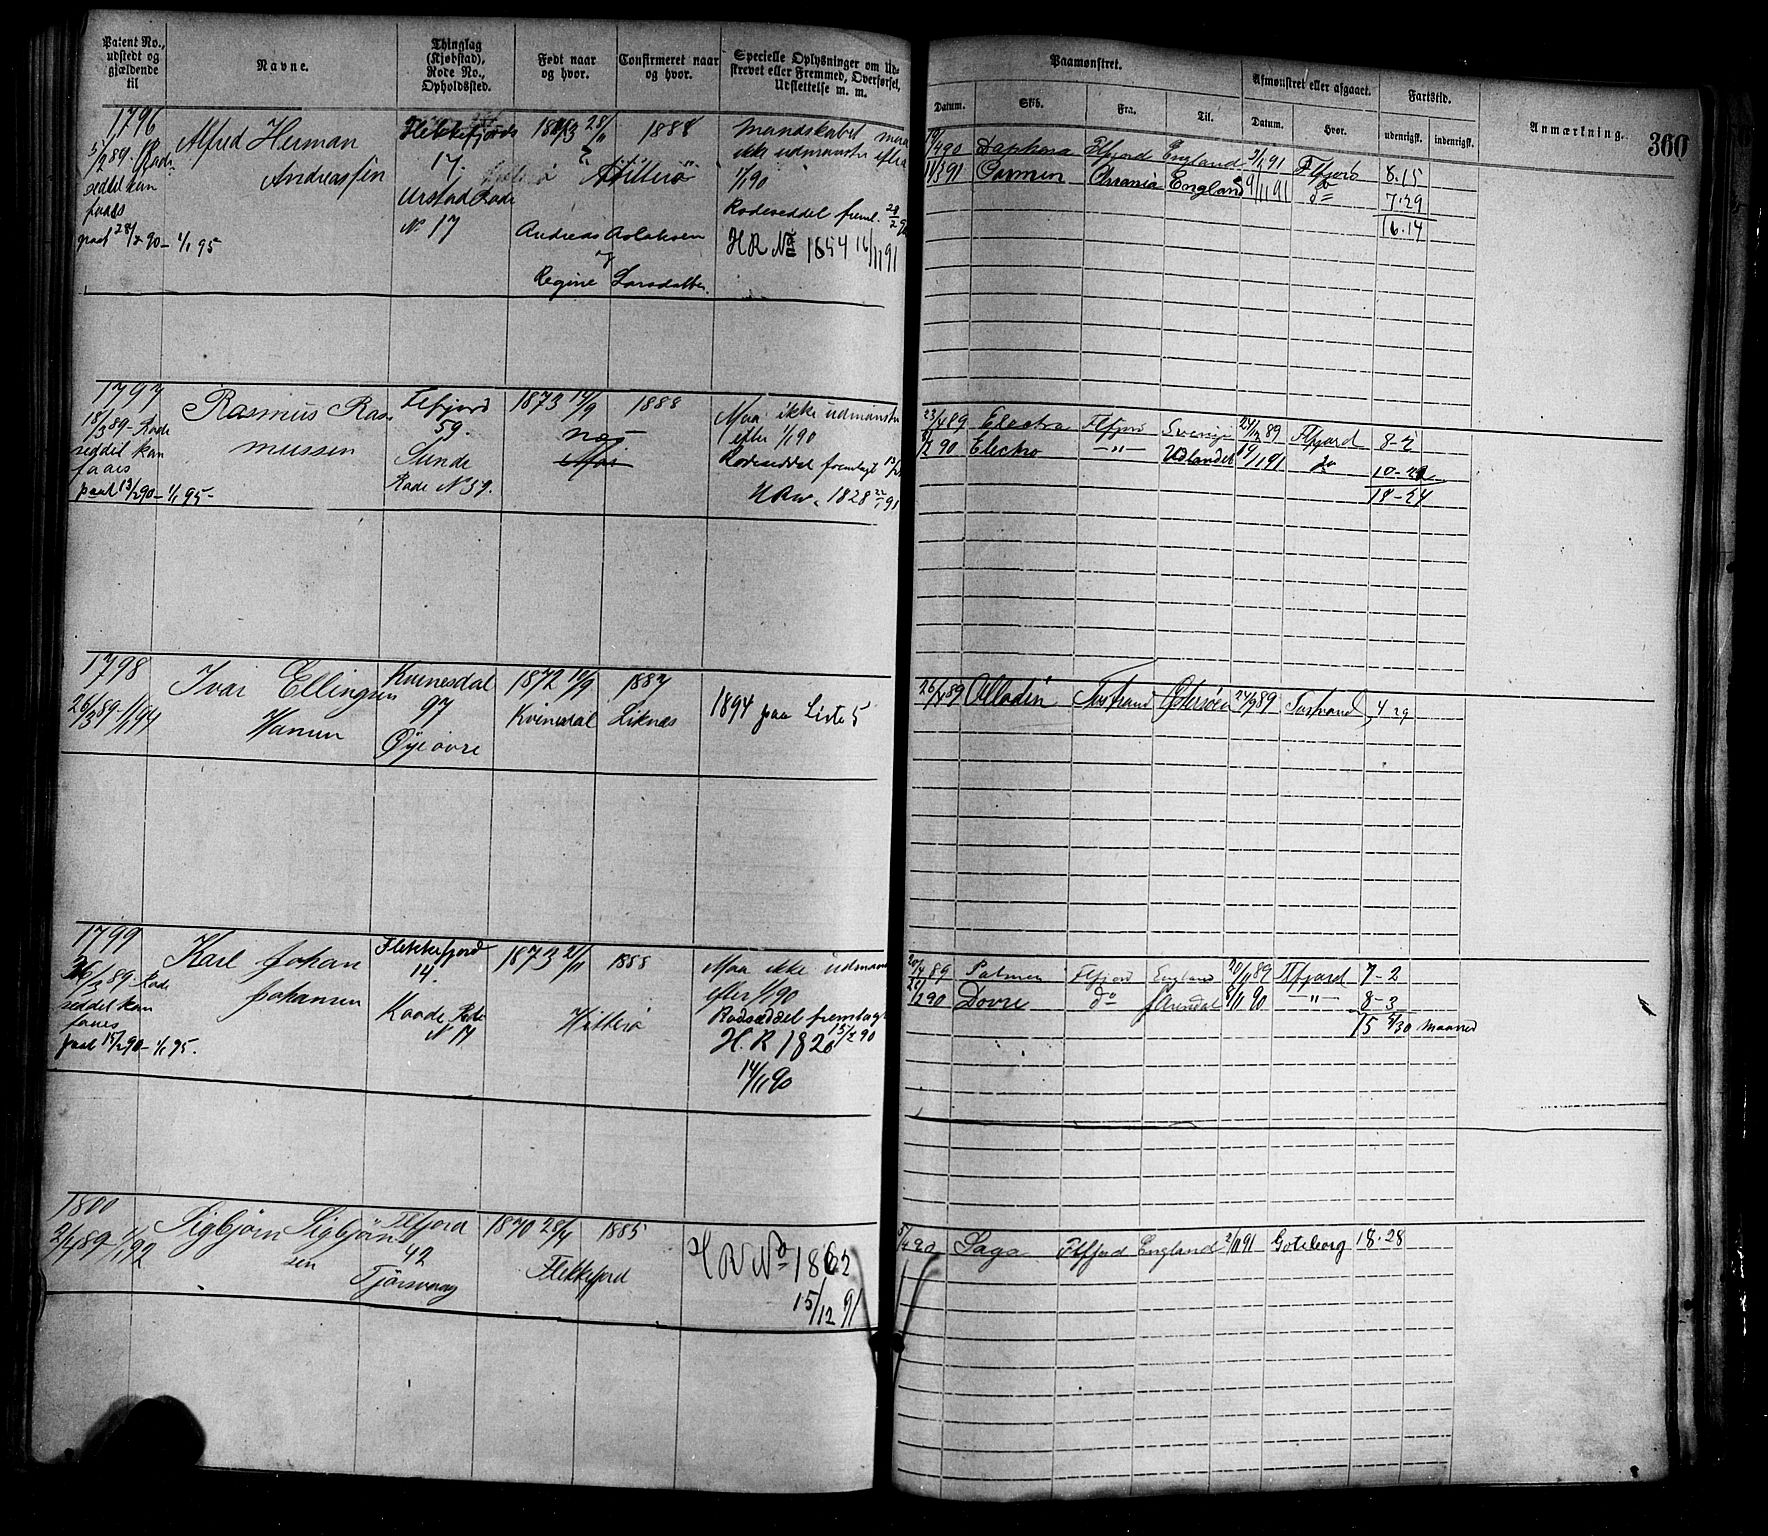 Patent No., udstedt og gjældende til
Navne.
Thinglag (Kjøbstad), Rode No., Opholdssted.
Født naar og hvor.
Confirmeret naar og hvor.
Specielle Oplysninger om Udskrevet eller Fremmed, Overførsel, Udslettelse m. m.
Paamønstret.
Datum.
Skib.
Fra.
Til.
Afmønstret eller afgaaet.
Datum.
Hvor.
Fartstid.
udenrigsk.
indenrigsk.
Anmærkning.
360
1796
5/2 89. Rode
seddel kan
faaes
paal 28/2 90 - 1/1 95
Alfred Herman
Andreassen
Flekkefjords
17.
Urstad Rode
No 17
1873 28/11
1888
Hitterø
Andreas Aslaksen
Regine Larsdatter
Mandskabet maa
ikke udmønstres efter
1/1 90
Rodeseddel freml. 28/2 90
HR No 1654 16/11 91
90
Ffjord England
Flfjord 8.15
11/3 91 Carmen
England
do 7.29
16.14
1797
18/3 89 - Rode
seddel kan
faaes
paal 13/2 90 - 1/1 95 -
Rasmus Ras
mussen
Flfjord
59.
Sunde
Rode No 59.
1873 14/9
1888
Næs
Maa ikke udmønstres
efter 1/1 90
Rodeseddel fremlagt
1828
23/4 89 Electra Flfjord Sverige 89 Flfjord 8-2
90 Electra -"- Udlandet 91 do
18-24
1798
26/3 89 - 1/1 94
Ivar Ellingsen
Hamen
Kvinesdal
97
Øye øvre
1872 10/9
Kvinesdal
1887
Liknes
1894 paa Liste 5
26/4 89 Alladin Østersøen 24/9 89 4 29
1799
26/3 89 - Rode
seddel kan
faaes
paal 15/2 90 - 1/1 95.
Karl Johan
Johansen
Flekkefjord
14.
Kaade Rode
No 14
1873 21/11
1888
Hitterø
Maa ikke udmøn
efter 1/1 90
Rodseddel fremlagt
15/2 90
H.R 1820
14/11 90
20/4 89 Palmen Flfjord England 20/11 89 Flfjord 7-2
90 Dovre do Arendal 90 -"- 8-3
15 5/30 maaned
1800
2/4 89 - 1/1 92
Sigbjørn Sigbjørn
sen
Flfjord
42
Tjørsvaag
1870 28/4
Flekkefjord
1885
HR No 1862
15/12 91
5/4 90 Saga Flfjord England 91 Goteborg 18.28